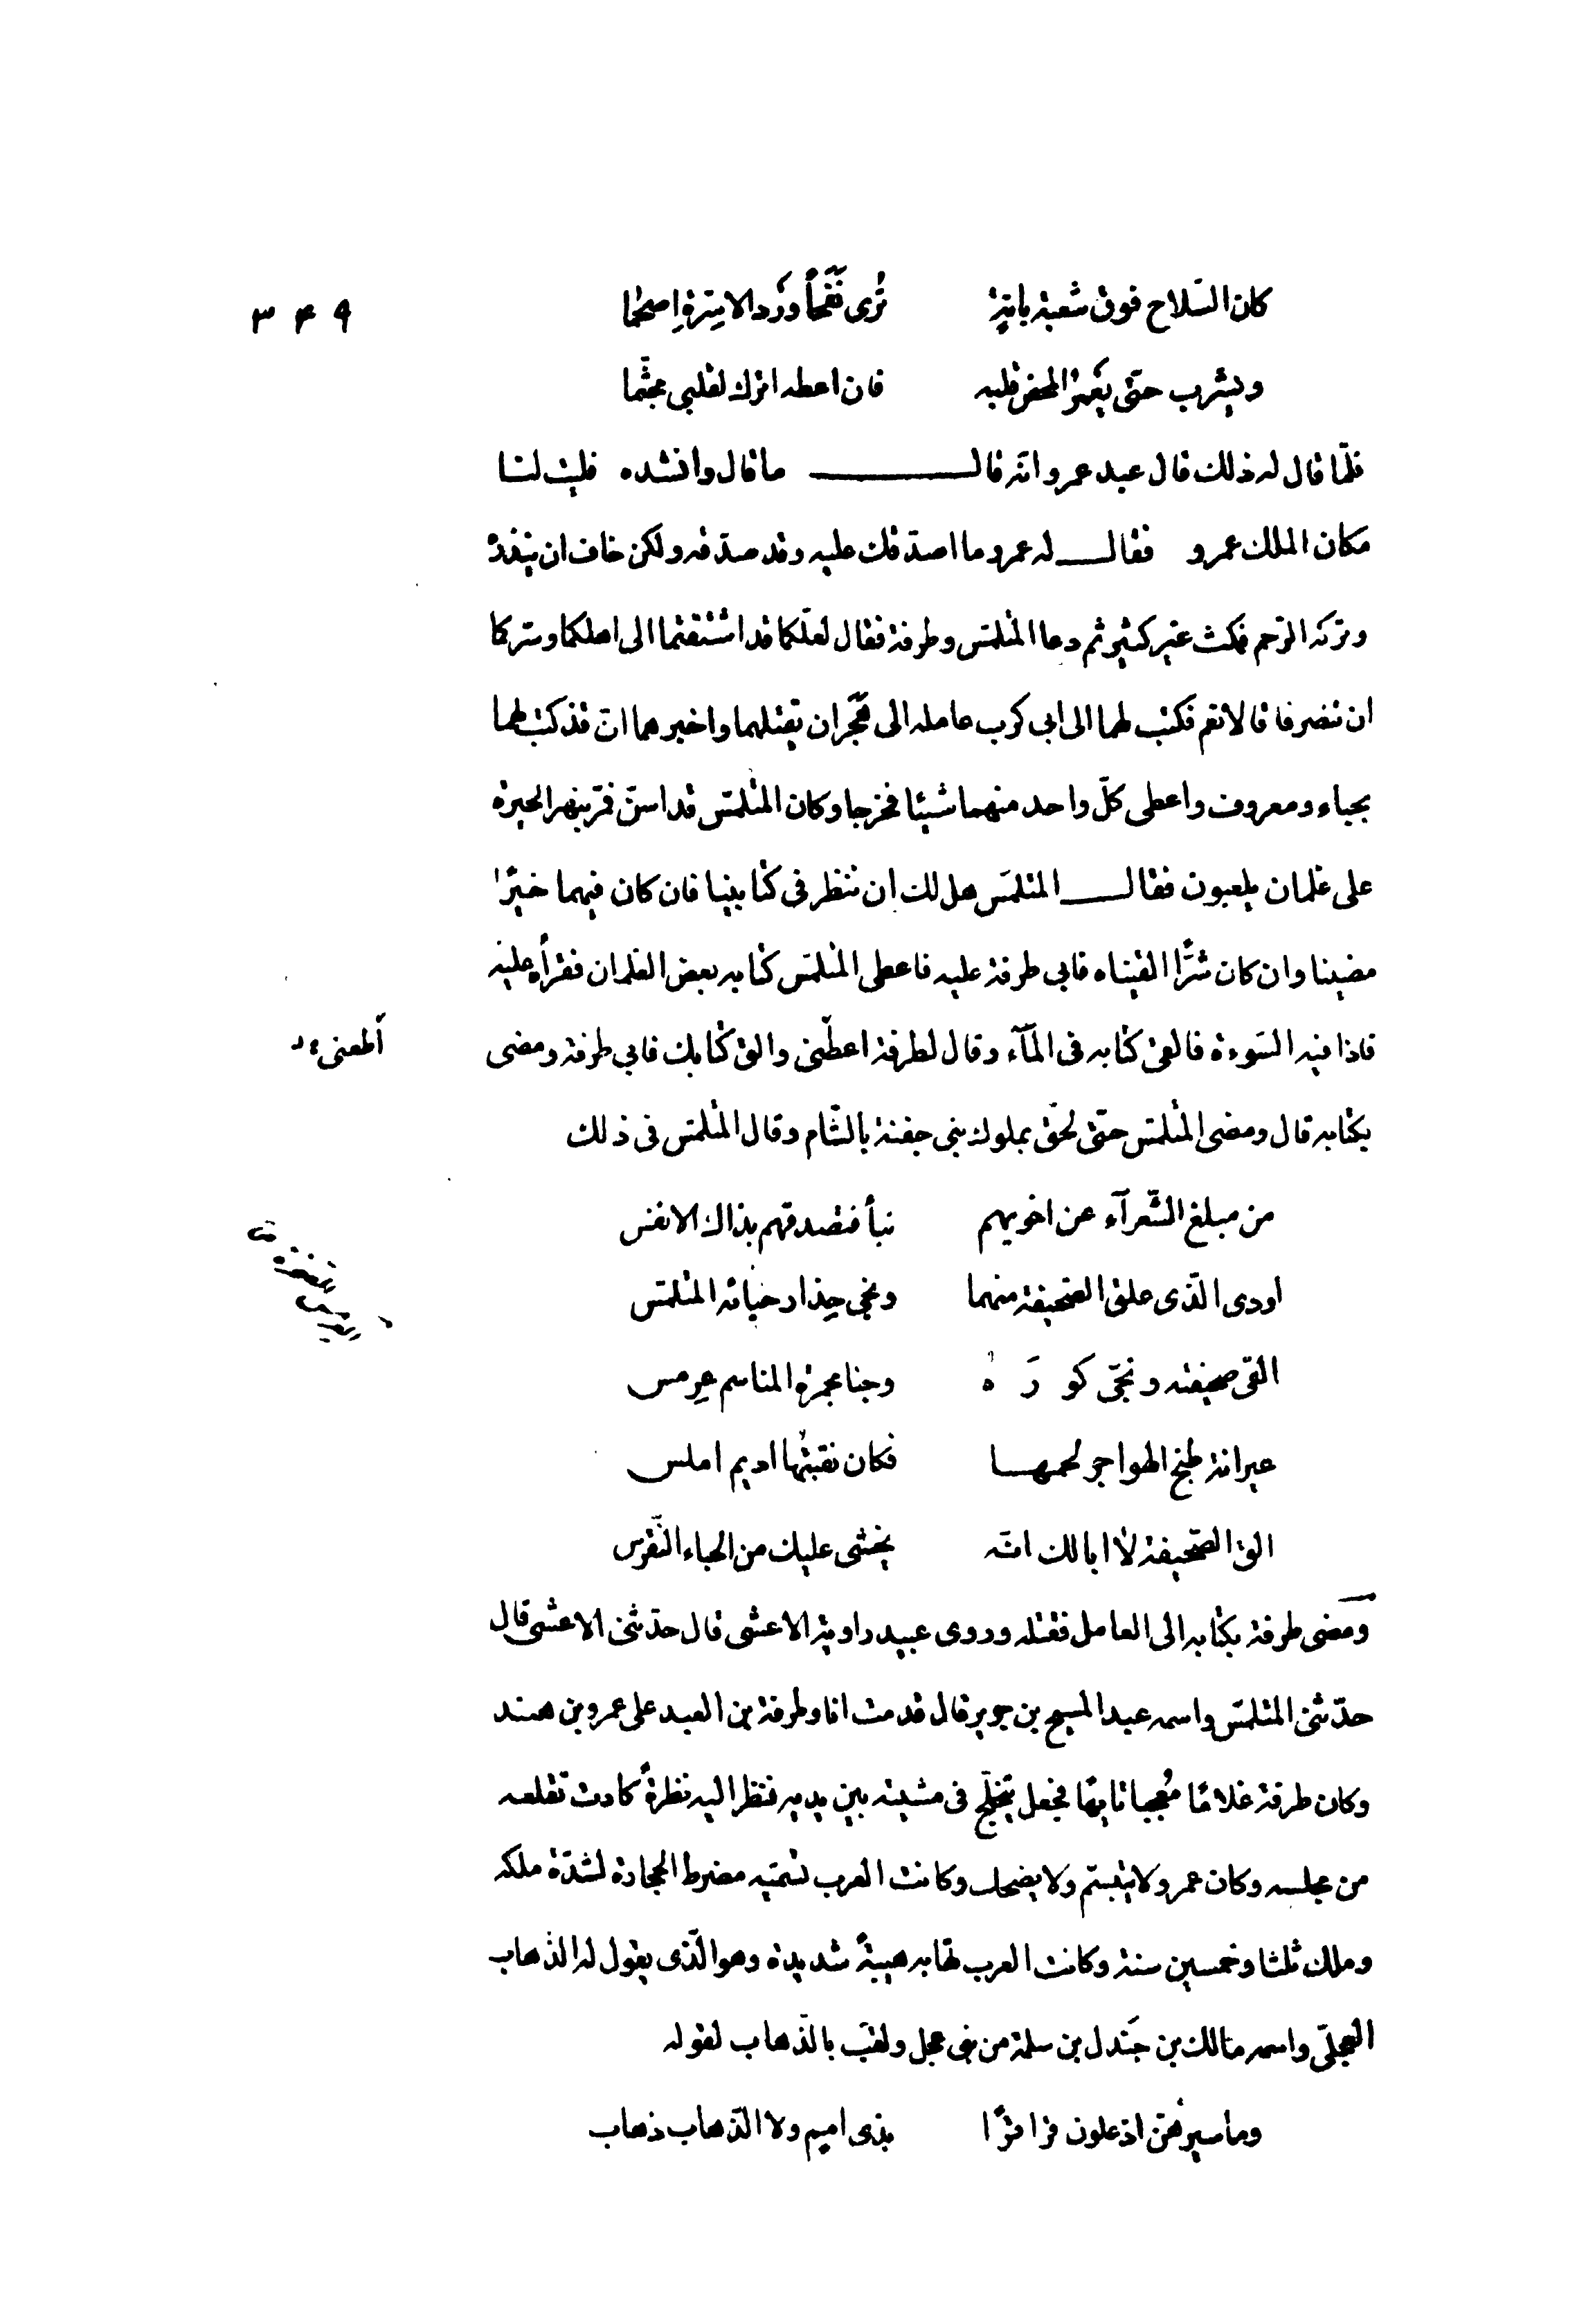 ٣٤٩
كان السّلاح فوق شعبة بانةٍ ترى نَفَخاً وَرْد الاسِرّةِ اصحما
ويشرب حتّى يغمرَ المحض قلبه فان اعطه اترك لقلبي مجثما
فلمّا قال له ذلك قال عبد عمرو انّه قال ما قال وانشده فليت لنا
مكان الملك عمرو فقال له عمرو ما اصدّقك عليه وقد صدّقه ولكن خاف ان ينذره
وتركه الرّحم فمكث غير كثير ثم دعا المتلمّس وطرفة فقال لعلّكما قد اشتقتما الى اهلكما وسرّكما
ان تنصرفا قالا نعم فكتب لهما الى ابي كرب عامله الى هَجَر ان يقتلهما واخبرهما انّ قد كتب لهما
بحباء ومعروف واعطى كلّ واحد منهما شيئا فخرجا وكان المتلمّس قد اسنّ فمرّ بنهر الحيرة
على غلمان يلعبون فقال المتلمّس هل لك ان ننظر فى كتابينا فان كان فيهما خيرًا
مضينا وان كان شرًّا القيناه فابى طرفة عليه فاعطى المتلمّس كتابه بعض الغلمان فقرأه عليه
فاذا فيه السّوءة فالقى كتابه فى المآء وقال لطرفة اعطنى والق كتابك فابى طرفة ومضى
أطعنى
بكتابه قال ومضى المتلمّس حتّى لحق بملوك بنى جفنة بالشّام وقال المتلمّس فى ذلك
من مبلغ الشّعرآء عن اخويهم نبأ فتصدقهم بذاك الانفس
اودى الّذى علق الصّحيفة منهما ونجى حِذار حبائه المتلمّس
القى صحيفته ونجّى كو رَ هُ وجنا مجمرة المناسم عِرمس
عيرانة طبخ الهواجر لحمها فكان نقبتُها اديم املس
الق الصّحيفة لا ابا لك انّه يخشى عليك من الحباء النّقرس
ومضى طرفة بكتابه الى العامل فقتله وروى عبيد راوية الاعشى قال حدّثنى الاعشى قال
حدّثنى المتلمّس واسمه عبد المسيح بن جرير قال قدمت انا وطرفة بن العبد على عمرو بن هند
وكان طرفة غلامًا مُعجبا تايهًا فجعل يتخلّج فى مشيته بين يديه فنظر اليه نظرةً كادت تقلعه
من مجلسه وكان عمرو لا يتبسّم ولا يضحك وكانت العرب تسمّيه مضرط الحجارة لشدّة ملكه
وملك ثلثا وخمسين سنة وكانت العرب تهابه هيبةً شديدة وهو الّذى يقول له الذهاب
العجلّى واسمه مالك بن جَندل بن سلمة من بنى عجل ولقّب بالذّهاب لقوله
وما سيرهُنّ اذ علون قراقرًا بذى اميم ولا الذّهاب ذهاب